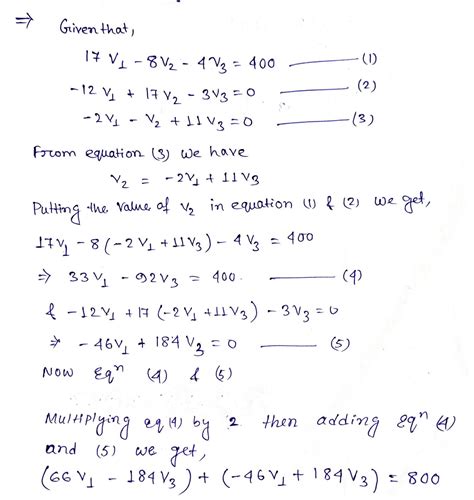 ⇒ Given that,
17 V₁ - 8V₂ - 4V₃ = 400 ——— (1)
-12 V₁ + 17 V₂ - 3V₃ = 0 ——— (2)
-2V₁ - V₂ + 11V₃ = 0 ——— (3)
From equation (3) we have
V₂ = -2V₁ + 11V₃
Putting the value of V₂ in equation (1) & (2) we get,
17V₁ - 8(-2V₁ + 11V₃) - 4V₃ = 400
⇒ 33V₁ - 92V₃ = 400. ——— (4)
& -12V₁ + 17(-2V₁ + 11V₃) - 3V₃ = 0
⇒ -46V₁ + 184V₃ = 0 ——— (5)
Now Eqⁿ (4) & (5)
Multiplying eq(4) by 2 then adding Eqⁿ (4)
and (5) we get,
(66V₁ - 184V₃) + (-46V₁ + 184V₃) = 800